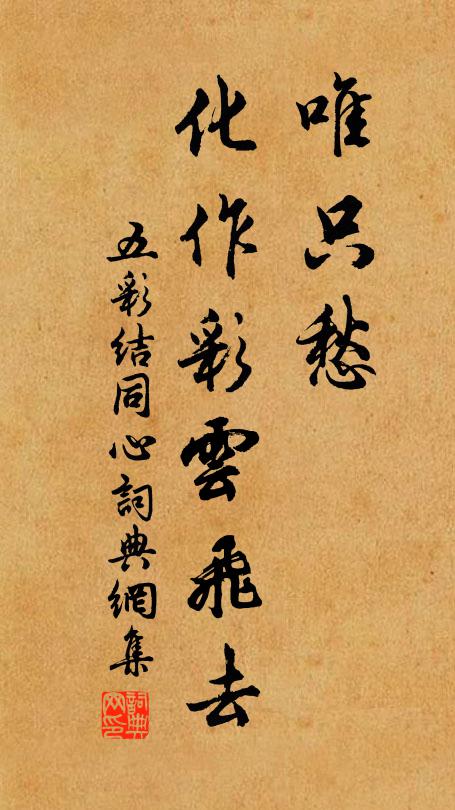 唯只愁
化作彩雲飛去
五彩結同心詞典網集
詞典
网印